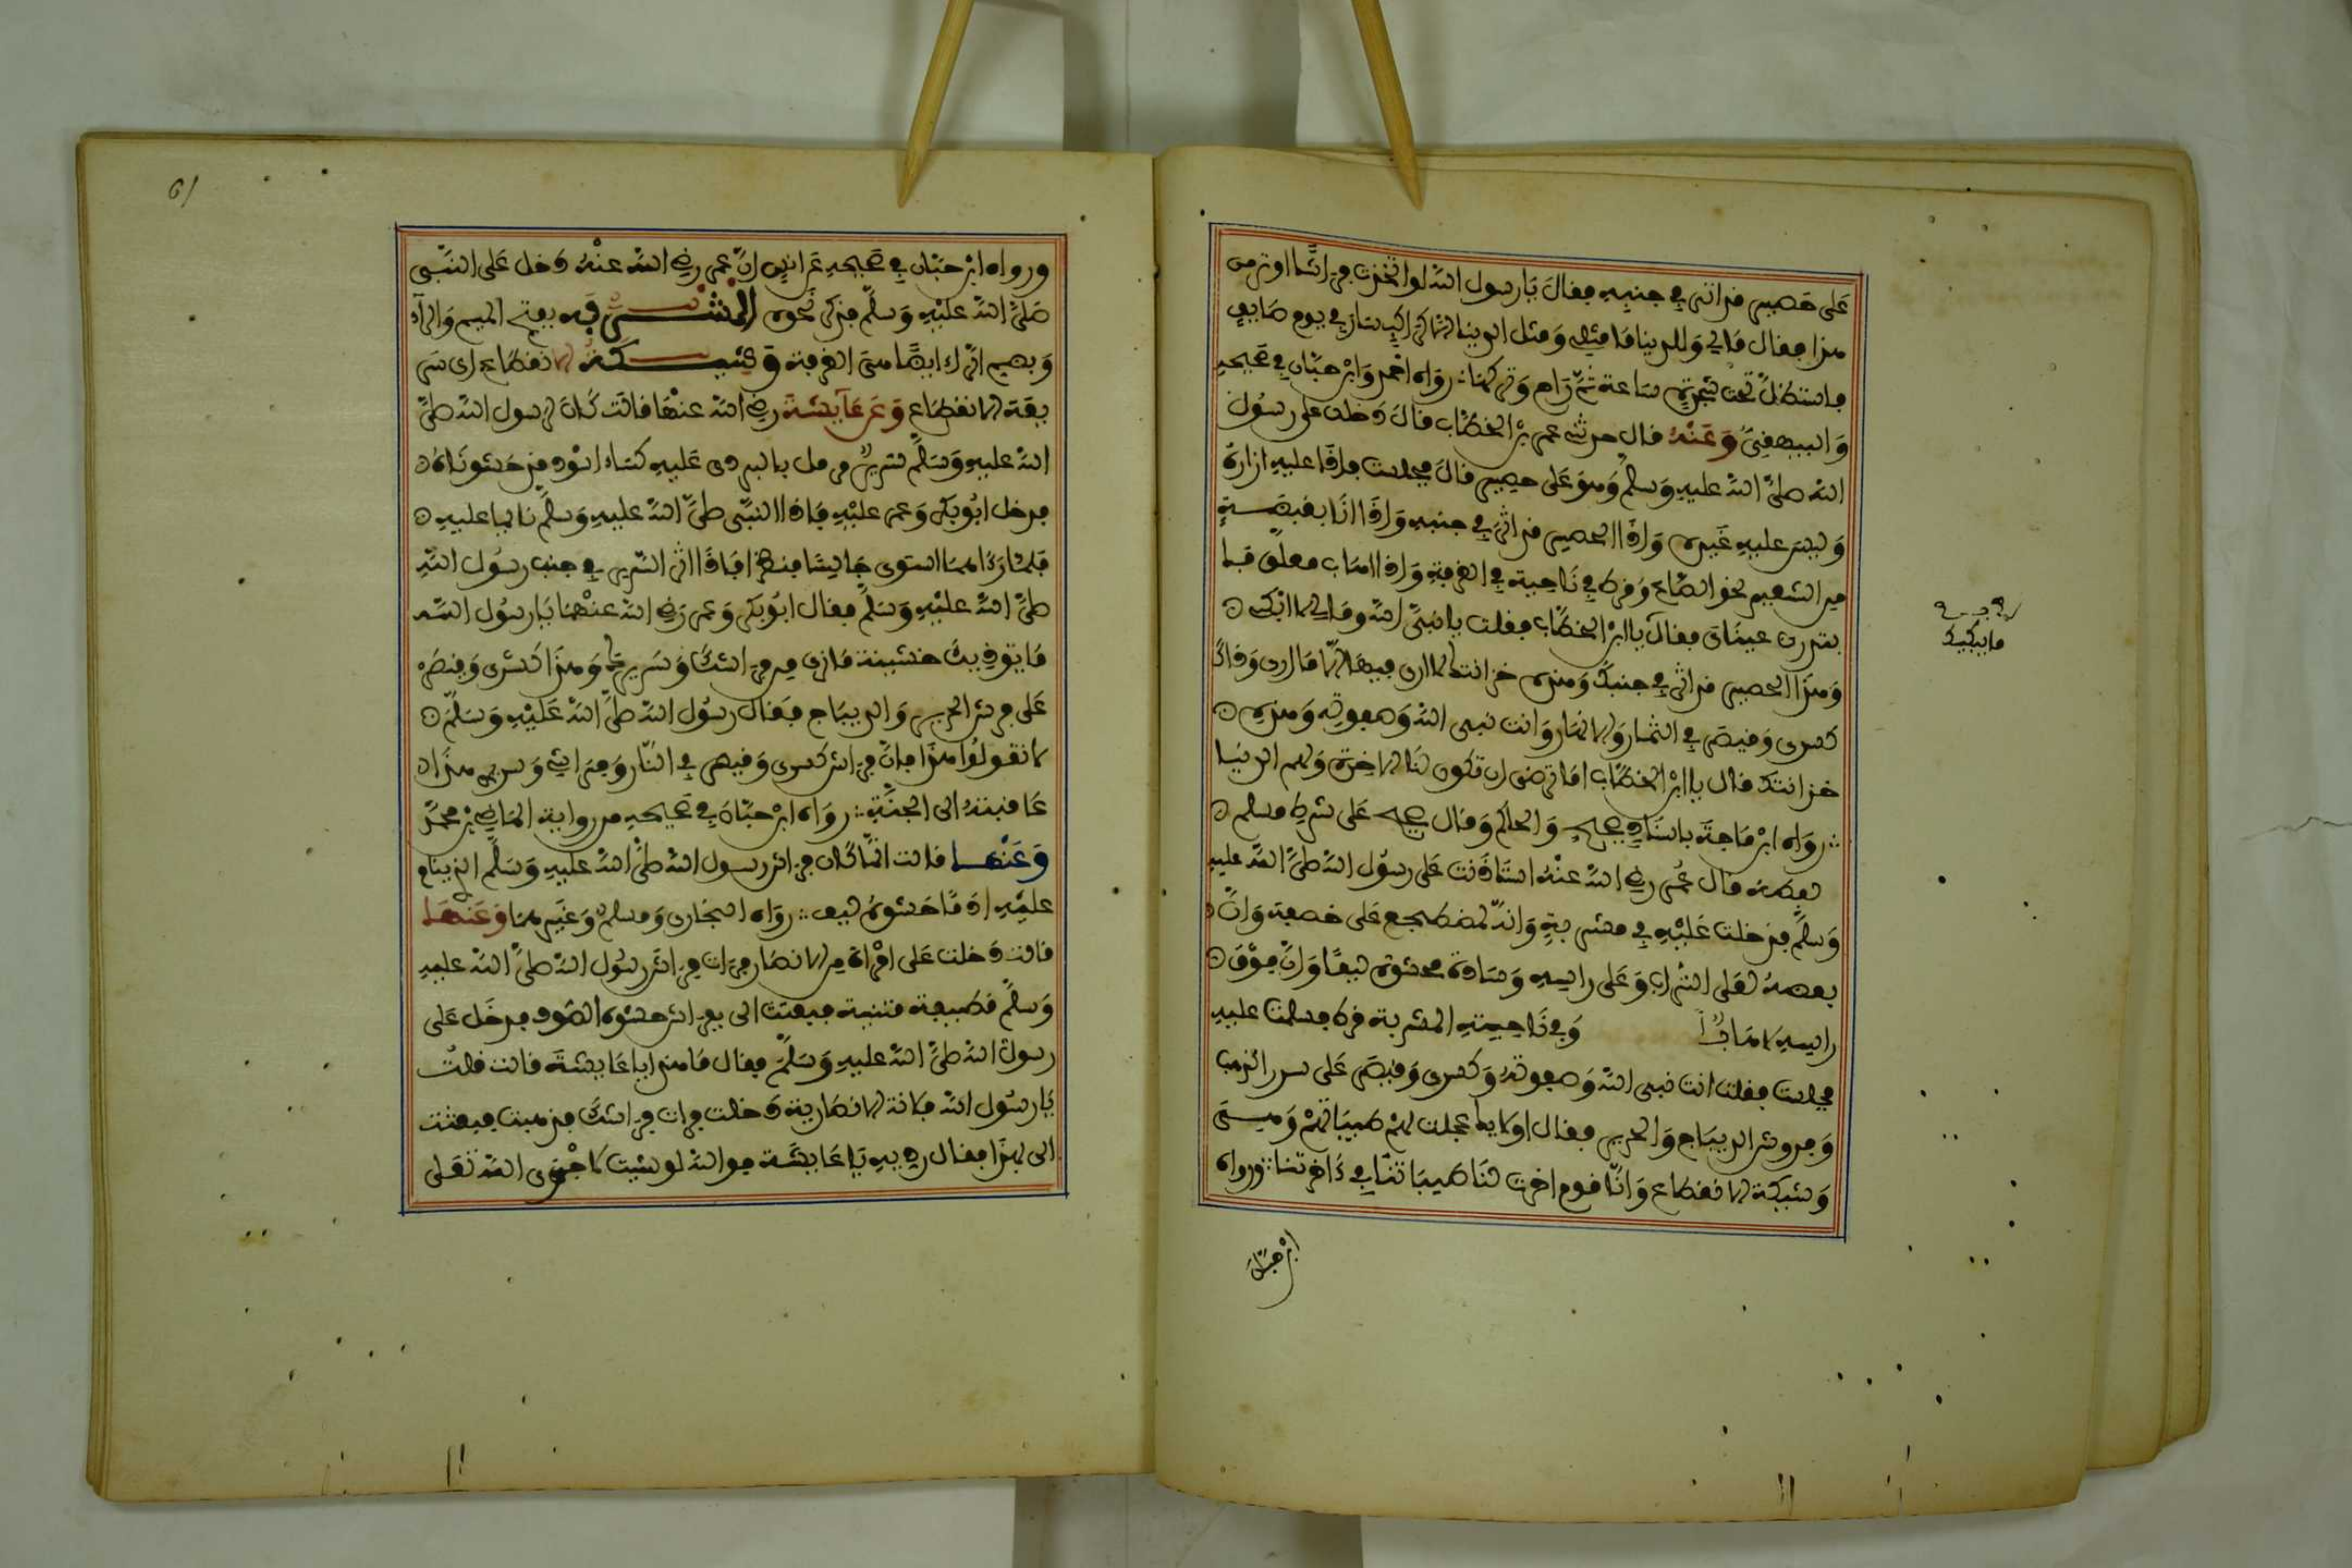 على حصير قد اثر في جنبه فقال يا رسول الله لو اتخذت فراشا اوثر من
هذا فقال مالي وللدنيا ما مثلي ومثل الدنيا الا كراكب سار في يوم صايف
فاستظل تحت شجرة ساعة ثم راح وتركها رواه احمد وابن حبان في صحيحه
والبيهقي وعنه قال حدثني عمر بن الخطاب قال دخلت على رسول
الله صلى الله عليه وسلم وهو على حصير قال فجلست فاذا عليه ازاره
وليس عليه غيره واذا الحصير قد اثر في جنبه واذا انا بقبضة
من الشعير نحو الصاع وقرظ في ناحية في الغرفة واذا اهاب معلق فـ
بتدرت عيناي فقال يا ابن الخطاب فقلت يا نبي الله ومالي لا ابكي
وهذا الحصير قد اثر في جنبك وهذه خزانتك لا ارى فيها الا ما ارى وذاك
كسرى وقيصر في الثمار والانهار وانت نبي الله وصفوته وهذه
خزانتك قال يا ابن الخطاب اما ترضى ان تكون لنا الاخرة ولهم الدنيا
رواه ابن ماجة باسناد صحيح والحاكم وقال صحيح على شرط مسلم
لفظه قال عمر رضي الله عنه استاذنت على رسول الله صلى الله عليه
وسلم فدخلت عليه في مشربة وانه لمضطجع على خصفة وان
بعضه لعلى التراب وعلى راسه وسادة محشوة ليفا وان فوق
راسه لاهابا وفي ناحية المشربة قرظ فسلمت عليه
فجلست فقلت انت نبي الله وصفوته وكسرى وقيصر على سرر الذهب
وفروش الديباج والحرير فقال اولايك عجلت لهم طيباتهم وهي
وشيكة الانقطاع وانا قوم اخرت لنا طيباتنا في ءاخرتنا ورواه
ما يبكيك
ابن حبان
61
ورواه ابن حبان في صحيحه عن انس ان عمر رضي الله عنه دخل على النبي
صلى الله عليه وسلم فذكر نحوه المشربة بفتح الميم والراء
وبضم الراء ايضا هي الغرفة وشيكة الانقطاع اي سر
يعة الانقطاع وعن عايشة رضي الله عنها قالت كان لرسول الله صلى
الله عليه وسلم سرير مرمل بالبردي عليه كساء اسود قد حشوناه
فدخل ابو بكر وعمر عليه فاذا النبي صلى الله عليه وسلم نايما عليه
فلما رءاهما استوى جالسا فنظرا فاذا اثر السرير في جنب رسول الله
صلى الله عليه وسلم فقال ابو بكر وعمر رضي الله عنهما يا رسول الله
ما يوذيك خشينة ما نرى من فراشك وسريرك وهذا كسرى وقيصر
على فرش الحرير والديباج فقال رسول الله صلى الله عليه وسلم
لا تقولوا هذا فان فراش كسرى وقيصر في النار وفراشي وسريري هذا
عاقبته الى الجنة رواه ابن حبان في صحيحه من رواية الماضي بن محمد
وعنها قالت انما كان فراش رسول الله صلى الله عليه وسلم الذي ينام
عليه ادما حشوه ليف رواه البخاري ومسلم وغيرهما وعنها
قالت دخلت على امراة من الانصار فرات فراش رسول الله صلى الله عليه
وسلم قطيفة مثنية فبعثت الي بفراش حشوه الصوف فدخل على
رسول الله صلى الله عليه وسلم فقال ما هذا يا عايشة قالت قلت
يا رسول الله فلانة الانصارية دخلت فرات فراشك فذهبت فبعثت
الي بهذا فقال رديه يا عايشة فوالله لو شيت لاجرى الله تعلى